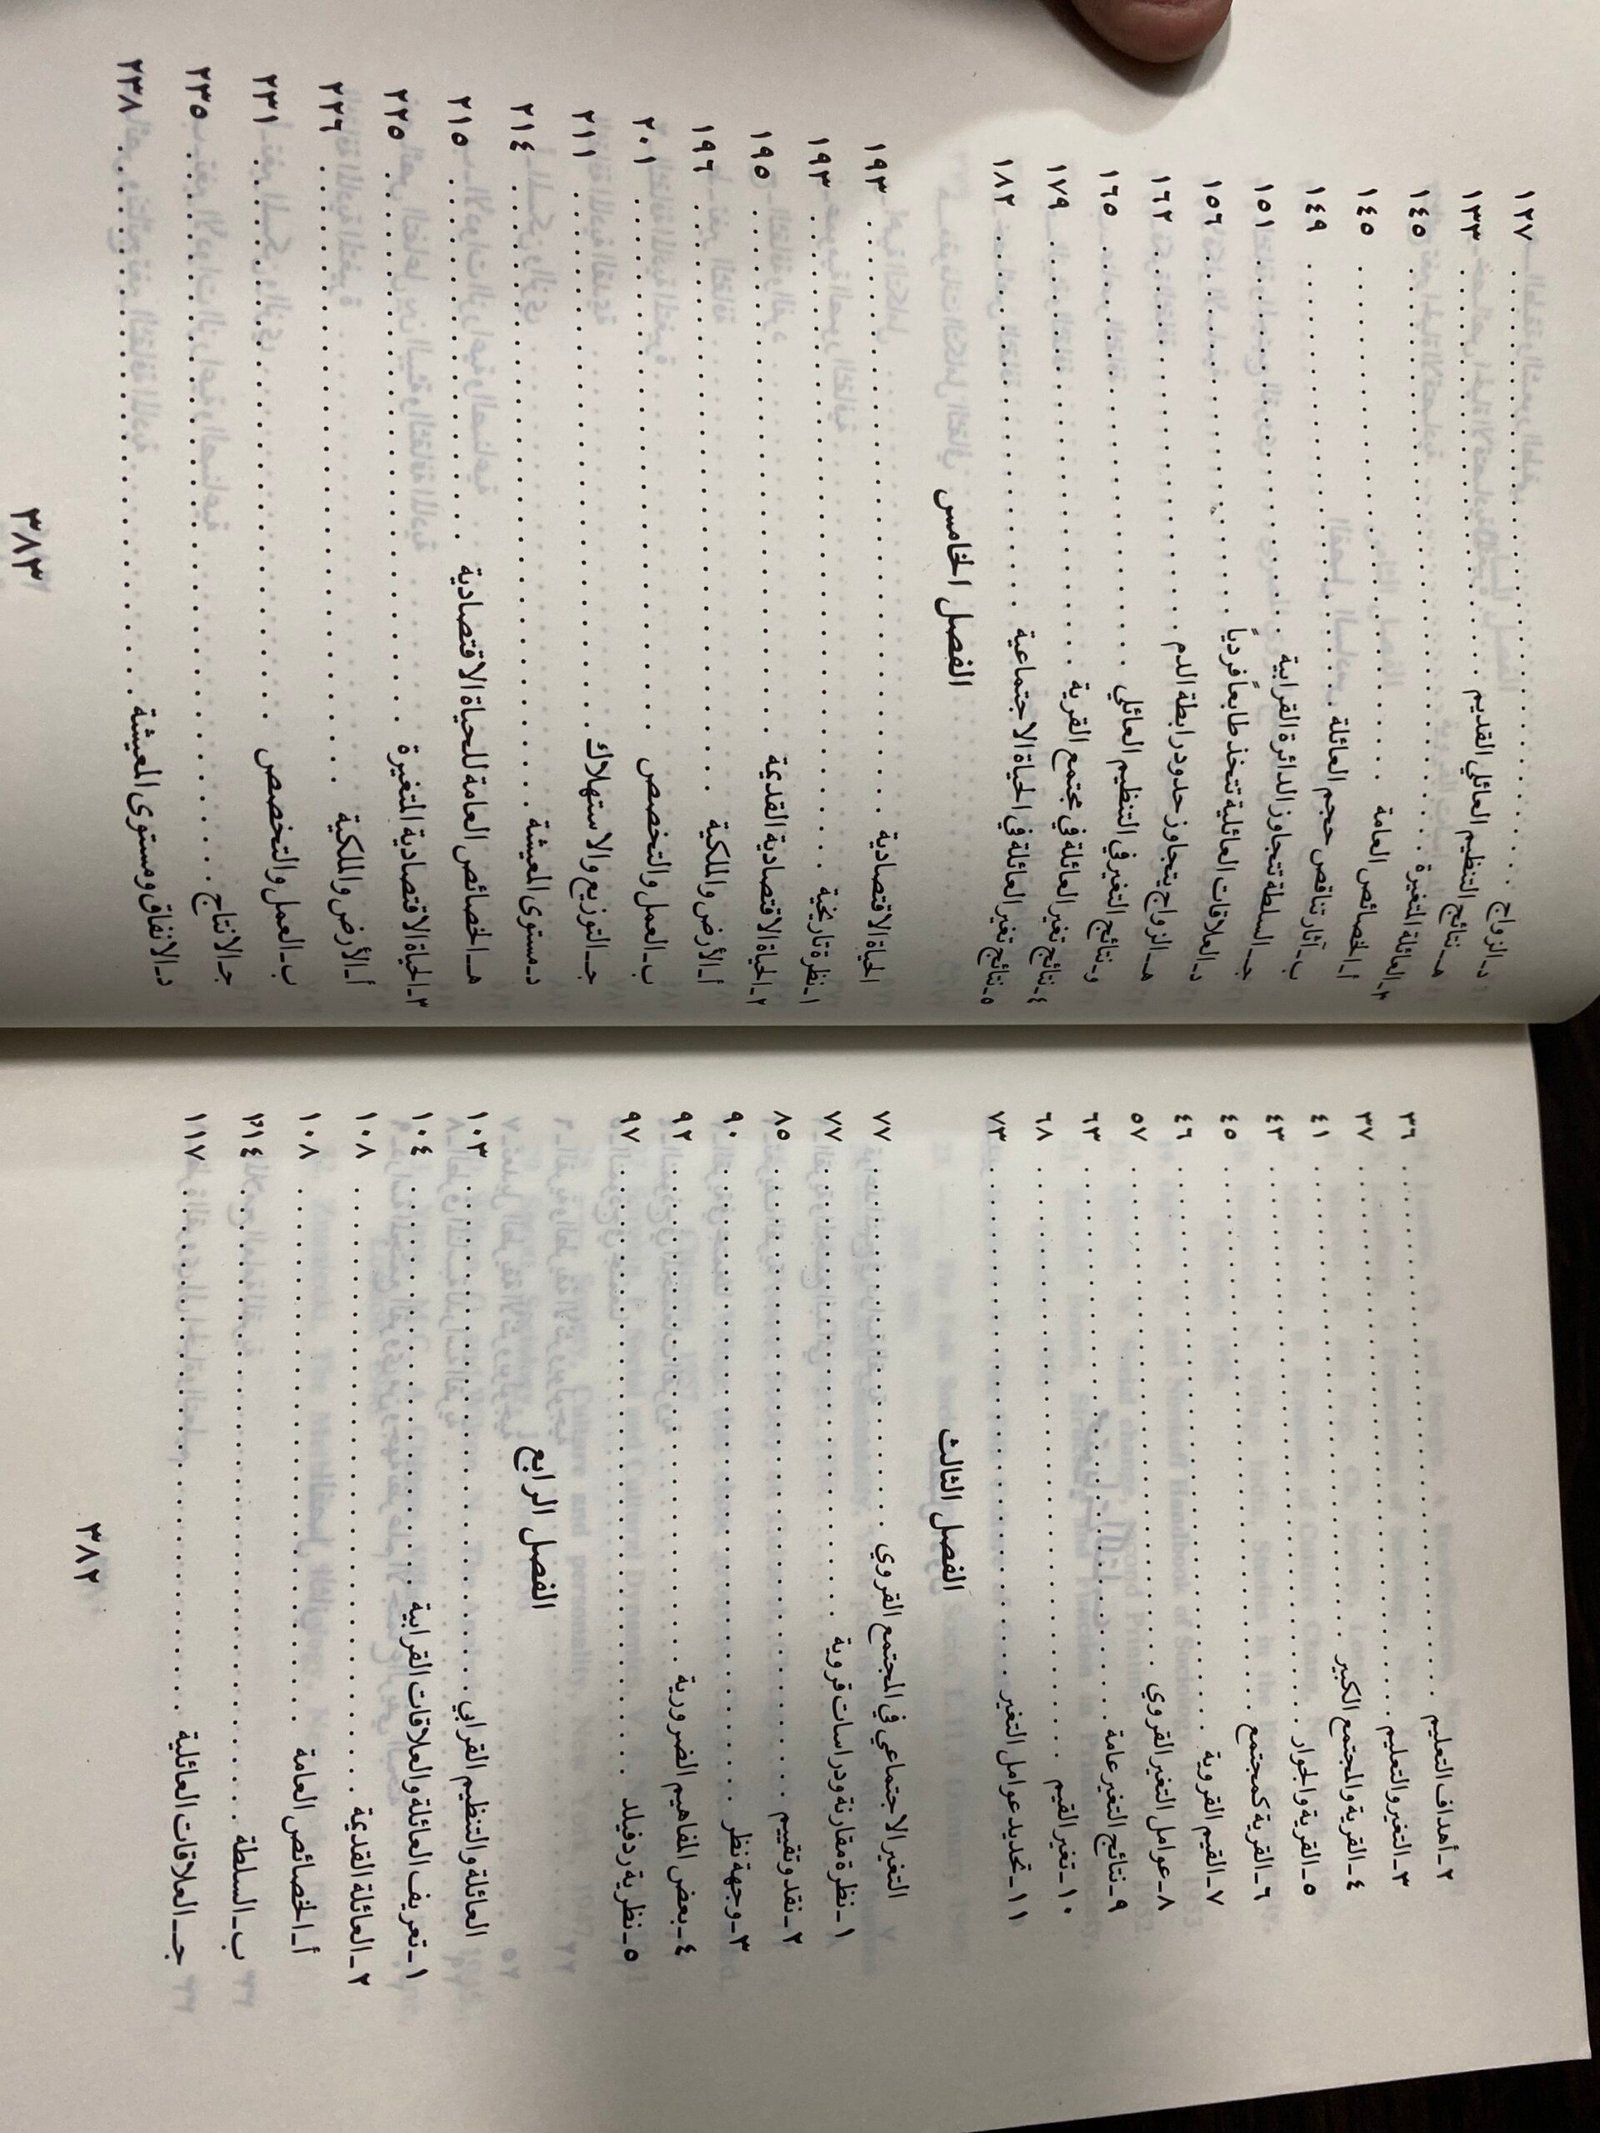 ٢ - أهداف التعليم . . . . ٣٦
٣ - التغير والتعليم . . . . ٣٧
٤ - القرية والمجتمع الكبير . . . . ٤١
٥ - القرية والجوار . . . . ٤٣
٦ - القرية كمجتمع . . . . ٤٥
٧ - القيم القروية . . . . ٤٦
٨ - عوامل التغير القروي . . . . ٥٧
٩ - نتائج التغير عامة . . . . ٦٣
١٠ - تغير القيم . . . . ٦٨
١١ - تحديد عوامل التغير . . . . ٧٣
الفصل الثالث
التغير الاجتماعي في المجتمع القروي . . . . ٧٧
١ - نظرة مقارنة ودراسات قروية . . . . ٧٧
٢ - نقد وتقييم . . . . ٨٥
٣ - وجهة نظر . . . . ٩٠
٤ - بعض المفاهيم الضرورية . . . . ٩٢
٥ - نظرية ردفيلد . . . . ٩٧
الفصل الرابع
العائلة والتنظيم القرابي . . . . ١٠٣
١ - تعريف العائلة والعلاقات القرابية . . . . ١٠٤
٢ - العائلة القديمة . . . . ١٠٨
أ - الخصائص العامة . . . . ١٠٨
ب - السلطة . . . .
جـ - العلاقات العائلية . . . . ١١٧
٣٨٢
د - الزواج . . . . ١٢٧
هـ - نتائج التنظيم العائلي القديم . . . . ١٣٣
٣ - العائلة المتغيرة . . . . ١٤٥
أ - الخصائص العامة . . . . ١٤٥
ب - آثار تناقص حجم العائلة . . . . ١٤٩
جـ - السلطة تتجاوز الدائرة القرابية . . . . ١٥١
د - العلاقات العائلية تتخذ طابعاً فردياً . . . . ١٥٦
هـ - الزواج يتجاوز حدود رابطة الدم . . . . ١٦٢
و - نتائج التغير في التنظيم العائلي . . . . ١٦٥
٤ - نتائج تغير العائلة في مجتمع القرية . . . . ١٧٩
٥ - نتائج تغير العائلة في الحياة الاجتماعية . . . . ١٨٢
الفصل الخامس
الحياة الاقتصادية . . . . ١٩٣
١ - نظرة تاريخية . . . . ١٩٣
٢ - الحياة الاقتصادية القديمة . . . . ١٩٥
أ - الأرض والملكية . . . . ١٩٦
ب - العمل والتخصص . . . . ٢٠١
جـ - التوزيع والاستهلاك . . . . ٢١١
د - مستوى المعيشة . . . . ٢١٤
هـ - الخصائص العامة للحياة الاقتصادية . . . . ٢١٥
٣ - الحياة الاقتصادية المتغيرة . . . . ٢٢٥
أ - الأرض والملكية . . . . ٢٢٦
ب - العمل والتخصص . . . . ٢٣١
جـ - الانتاج . . . . ٢٣٥
د - الانفاق ومستوى المعيشة . . . . ٢٣٨
٣٨٣